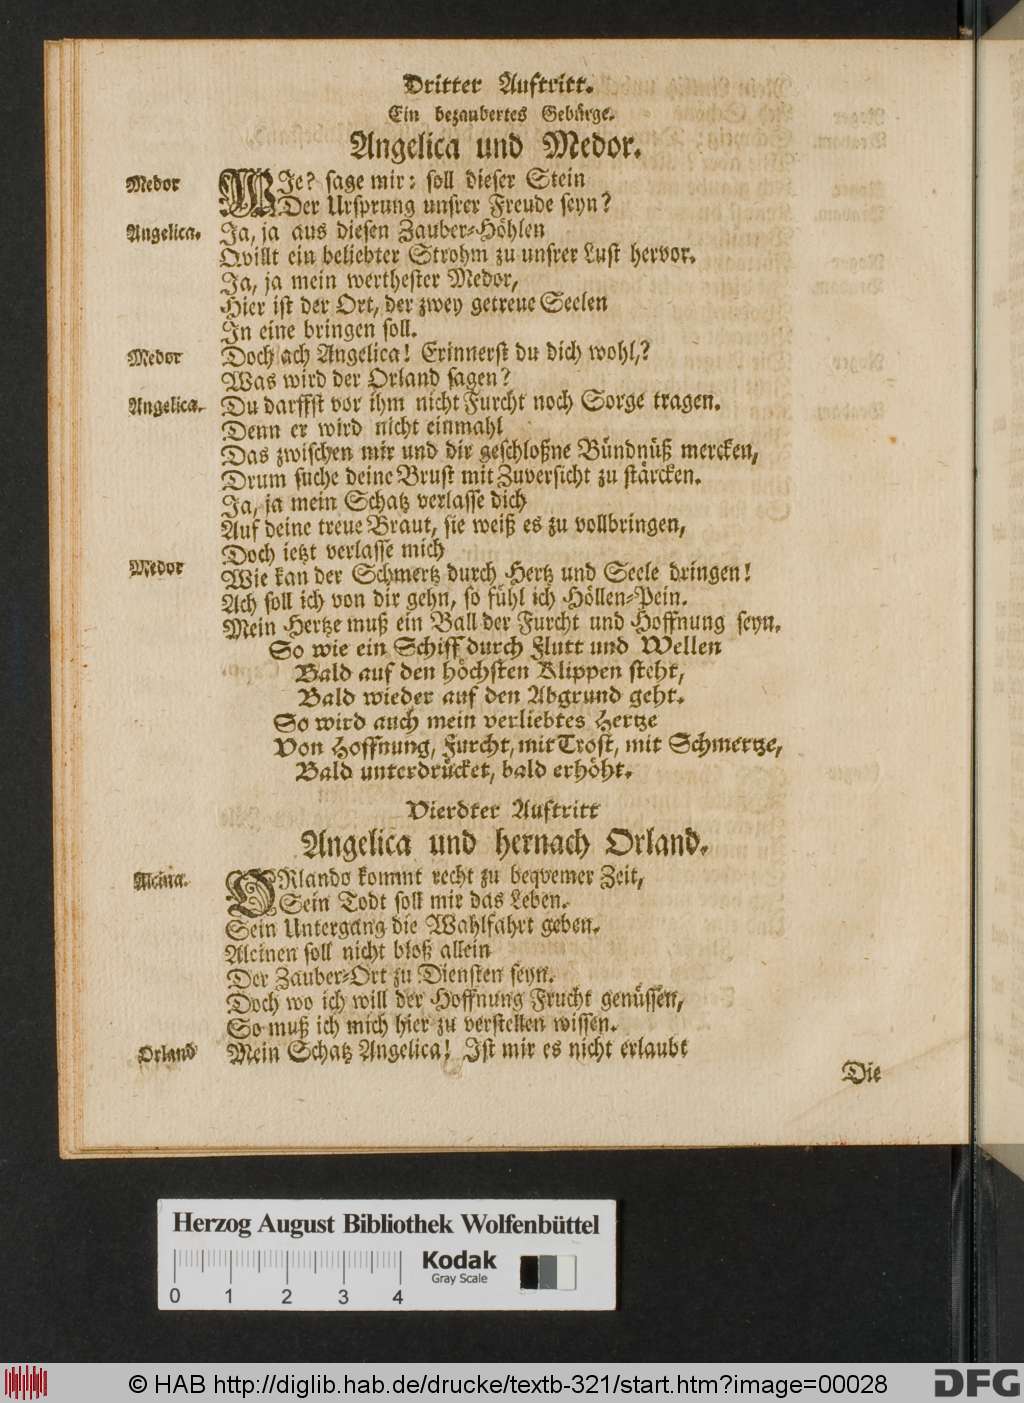 Dritter Auftritt.
Ein bezaubertes Gebürge.
Angelica und Medor.
Medor WIe? sage mir: soll dieser Stein
Der Ursprung unsrer Freude seyn?
Angelica. Ja, ja aus diesen Zauber-Höhlen
Qvillt ein beliebter Strohm zu unsrer Lust hervor.
Ja, ja mein werthester Medor,
Hier ist der Ort, der zwey getreue Seelen
In eine bringen soll.
Medor Doch ach Angelica! Erinnerst du dich wohl,?
Was wird der Orland sagen?
Angelica. Du darffst vor ihm nicht Furcht noch Sorge tragen.
Denn er wird nicht einmahl
Das zwischen mir und dir geschloßne Bündnüß mercken,
Drum suche deine Brust mit Zuversicht zu stärcken.
Ja, ja mein Schatz verlasse dich
Auf deine treue Braut, sie weiß es zu vollbringen,
Doch ietzt verlasse mich
Medor Wie kan der Schmertz durch Hertz und Seele dringen!
Ach soll ich von dir gehn, so fühl ich Höllen-Pein.
Mein Hertze muß ein Ball der Furcht und Hoffnung seyn.
So wie ein Schiff durch Flutt und Wellen
Bald auf den höchsten Klippen steht,
Bald wieder auf den Abgrund geht.
So wird auch mein verliebtes Hertze
Von Hoffnung, Furcht, mit Trost, mit Schmertze,
Bald unterdrücket, bald erhöht.
Vierdter Auftritt
Angelica und hernach Orland.
Alcina. ORlando kommt recht zu beqvemer Zeit,
Sein Todt soll mir das Leben.
Sein Untergang die Wahlfahrt geben.
Alcinen soll nicht bloß allein
Der Zauber-Ort zu Diensten seyn.
Doch wo ich will der Hoffnung Frucht genüssen,
So muß ich mich hier zu verstellen wissen.
Orland Mein Schatz Angelica! Ist mir es nicht erlaubt
Die
Herzog August Bibliothek Wolfenbüttel
Kodak
Gray Scale
0 1 2 3 4
© HAB http://diglib.hab.de/drucke/textb-321/start.htm?image=00028
DFG